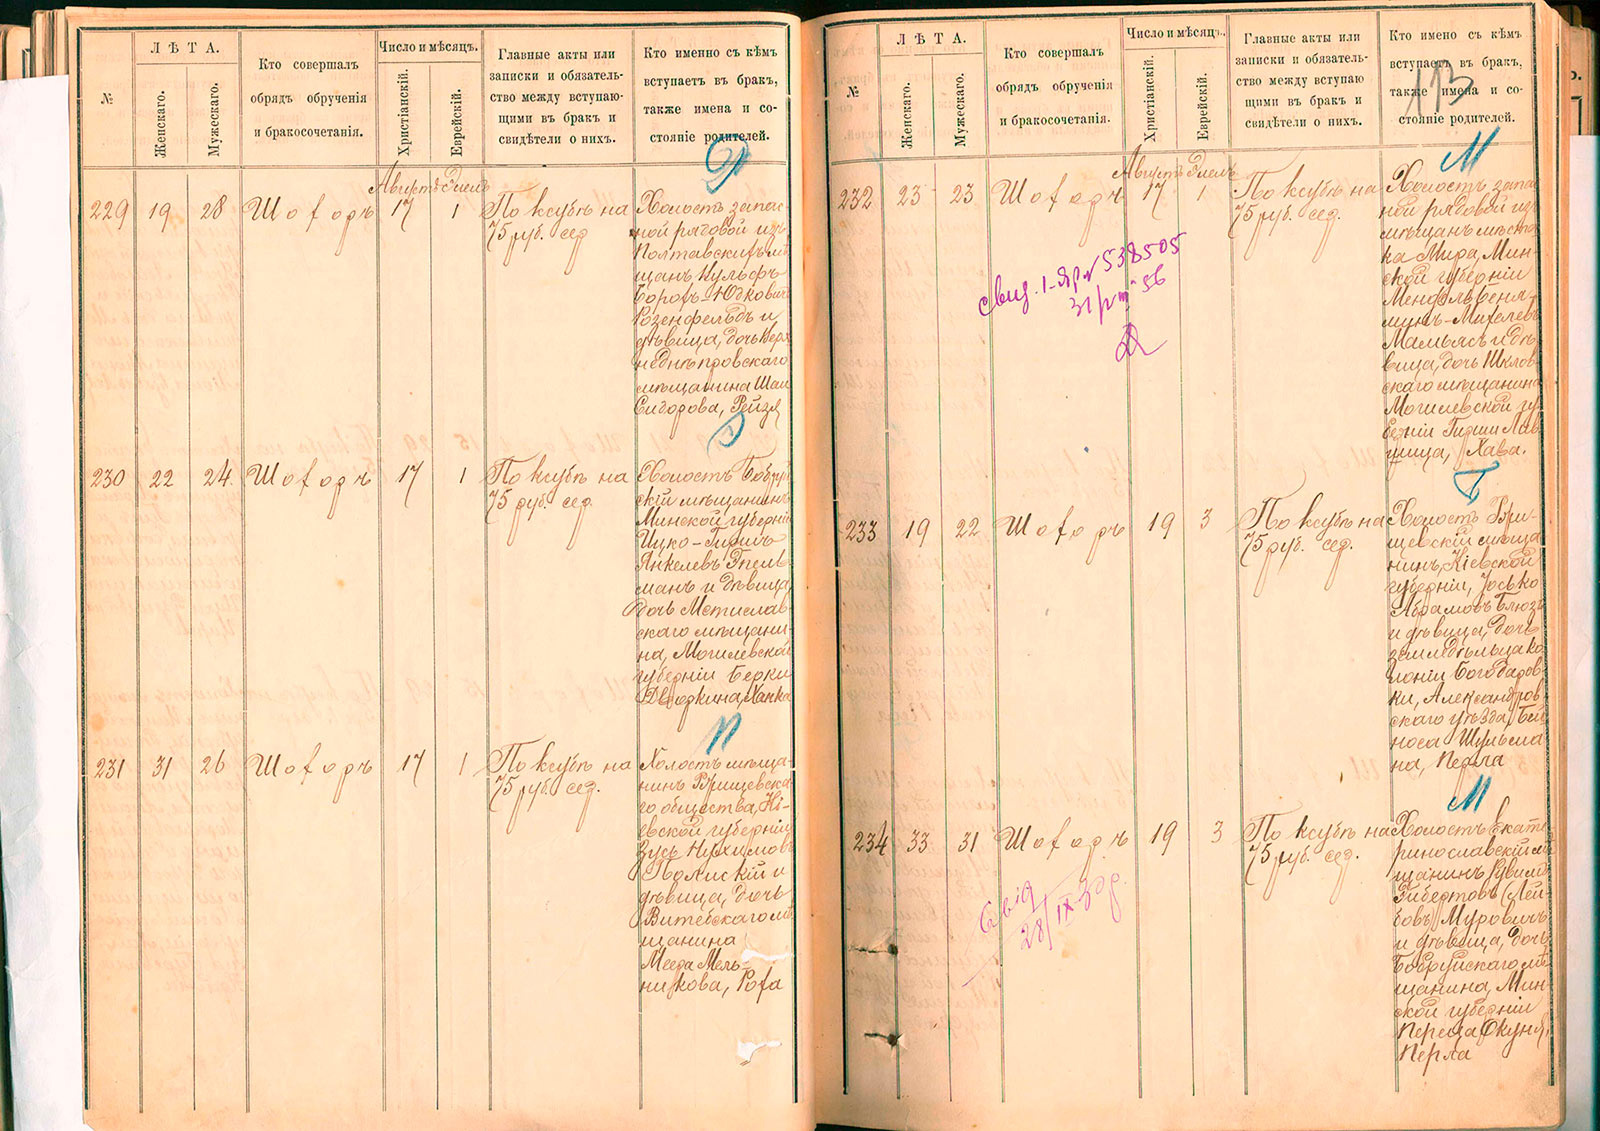 №
ЛѢТА.
Женскаго.
Мужескаго.
Кто совершалъ
обрядъ обрученія
и бракосочетанія.
Число и мѣсяцъ.
Христіанскій.
Еврейскій.
Главные акты или
записки и обязатель-
ство между вступаю-
щими въ бракъ и
свидѣтели о нихъ.
Кто именно съ кѣмъ
вступаетъ въ бракъ,
также имена и со-
стояніе родителей.
Августъ Элелъ
229 19 28 Шофоръ 17 1
По ксубѣ на
75 руб. сер.
Холостъ запас-
ной рядовой изъ
Полтавскихъ мѣ
щанъ Вульфъ
Борохъ-Юдковичъ
Розенфельдъ и
дѣвица, дочь Верх
неднѣпровскаго
мѣщанина Шаи
Сигорова, Рейзя
230 22 24 Шофоръ 17 1
По ксубѣ на
75 руб. сер.
Холостъ Бобруй
скій мѣщанинъ
Минской губерніи
Ицко-Гиршъ
Янкелевъ Гпсель
манъ и дѣвица,
дочь Мстислав
скаго мѣщани-
на, Могилевской
губерніи Берки
Дворкина, Ханка
231 31 26 Шофоръ 17 1
По ксубѣ на
75 руб. сер.
Холостъ мѣща-
нинъ Ржищевска-
го общества, Кі-
евской губерніи
Зусь Нухимовъ
Полискій и
дѣвица, дочь
Витебскаго мѣ
щанина
Меера Мель-
никова, Рофа
№
ЛѢТА.
Женскаго.
Мужескаго.
Кто совершалъ
обрядъ обрученія
и бракосочетанія.
Число и мѣсяцъ.
Христіанскій.
Еврейскій.
Главные акты или
записки и обязатель-
ство между вступаю
щими въ бракъ и
свидѣтели о нихъ.
Кто имено съ кѣмъ
вступаетъ въ бракъ,
также имена и со-
стояніе родителей.
113
М
Августъ Элелъ
232 23 23 Шофоръ 17 1
По ксубѣ на
75 руб. сер.
Холостъ запа
сной рядовой изъ
мѣщанъ мѣстеч
ка Мира, Мин-
ской губерніи
Мендель Беня-
минъ-Михелевъ
Мамьясъ и дѣ
вица, дочь Шклов
скаго мѣщанина
Могилевской гу
берніи Гирши Лав
шица, Хава.
свид. 1-ЯР № 538505
31/VIII 56
233 19 22 Шофоръ 19 3
По ксубѣ на
75 руб. сер.
Холостъ Ржи-
щевскій мѣща
нинъ, Кіевской
губерніи, Іосько
Абрамовъ Блюзъ
и дѣвица, дочь
земледѣльца ко
лоніи Богодаров
ки, Александров
скаго уѣзда, Бей
носа Шульма
на, Перла
М
234 33 31 Шофоръ 19 3
По ксубѣ на
75 руб. сер.
Холостъ Екате
ринославскій мѣ
щанинъ Рувимъ
Гибертовъ (Лей
бовъ) Муровичъ
и дѣвица, дочь
Бобруйскаго мѣ
щанина, Мин-
ской губерніи
Переца Окуня,
Перла
28/IX